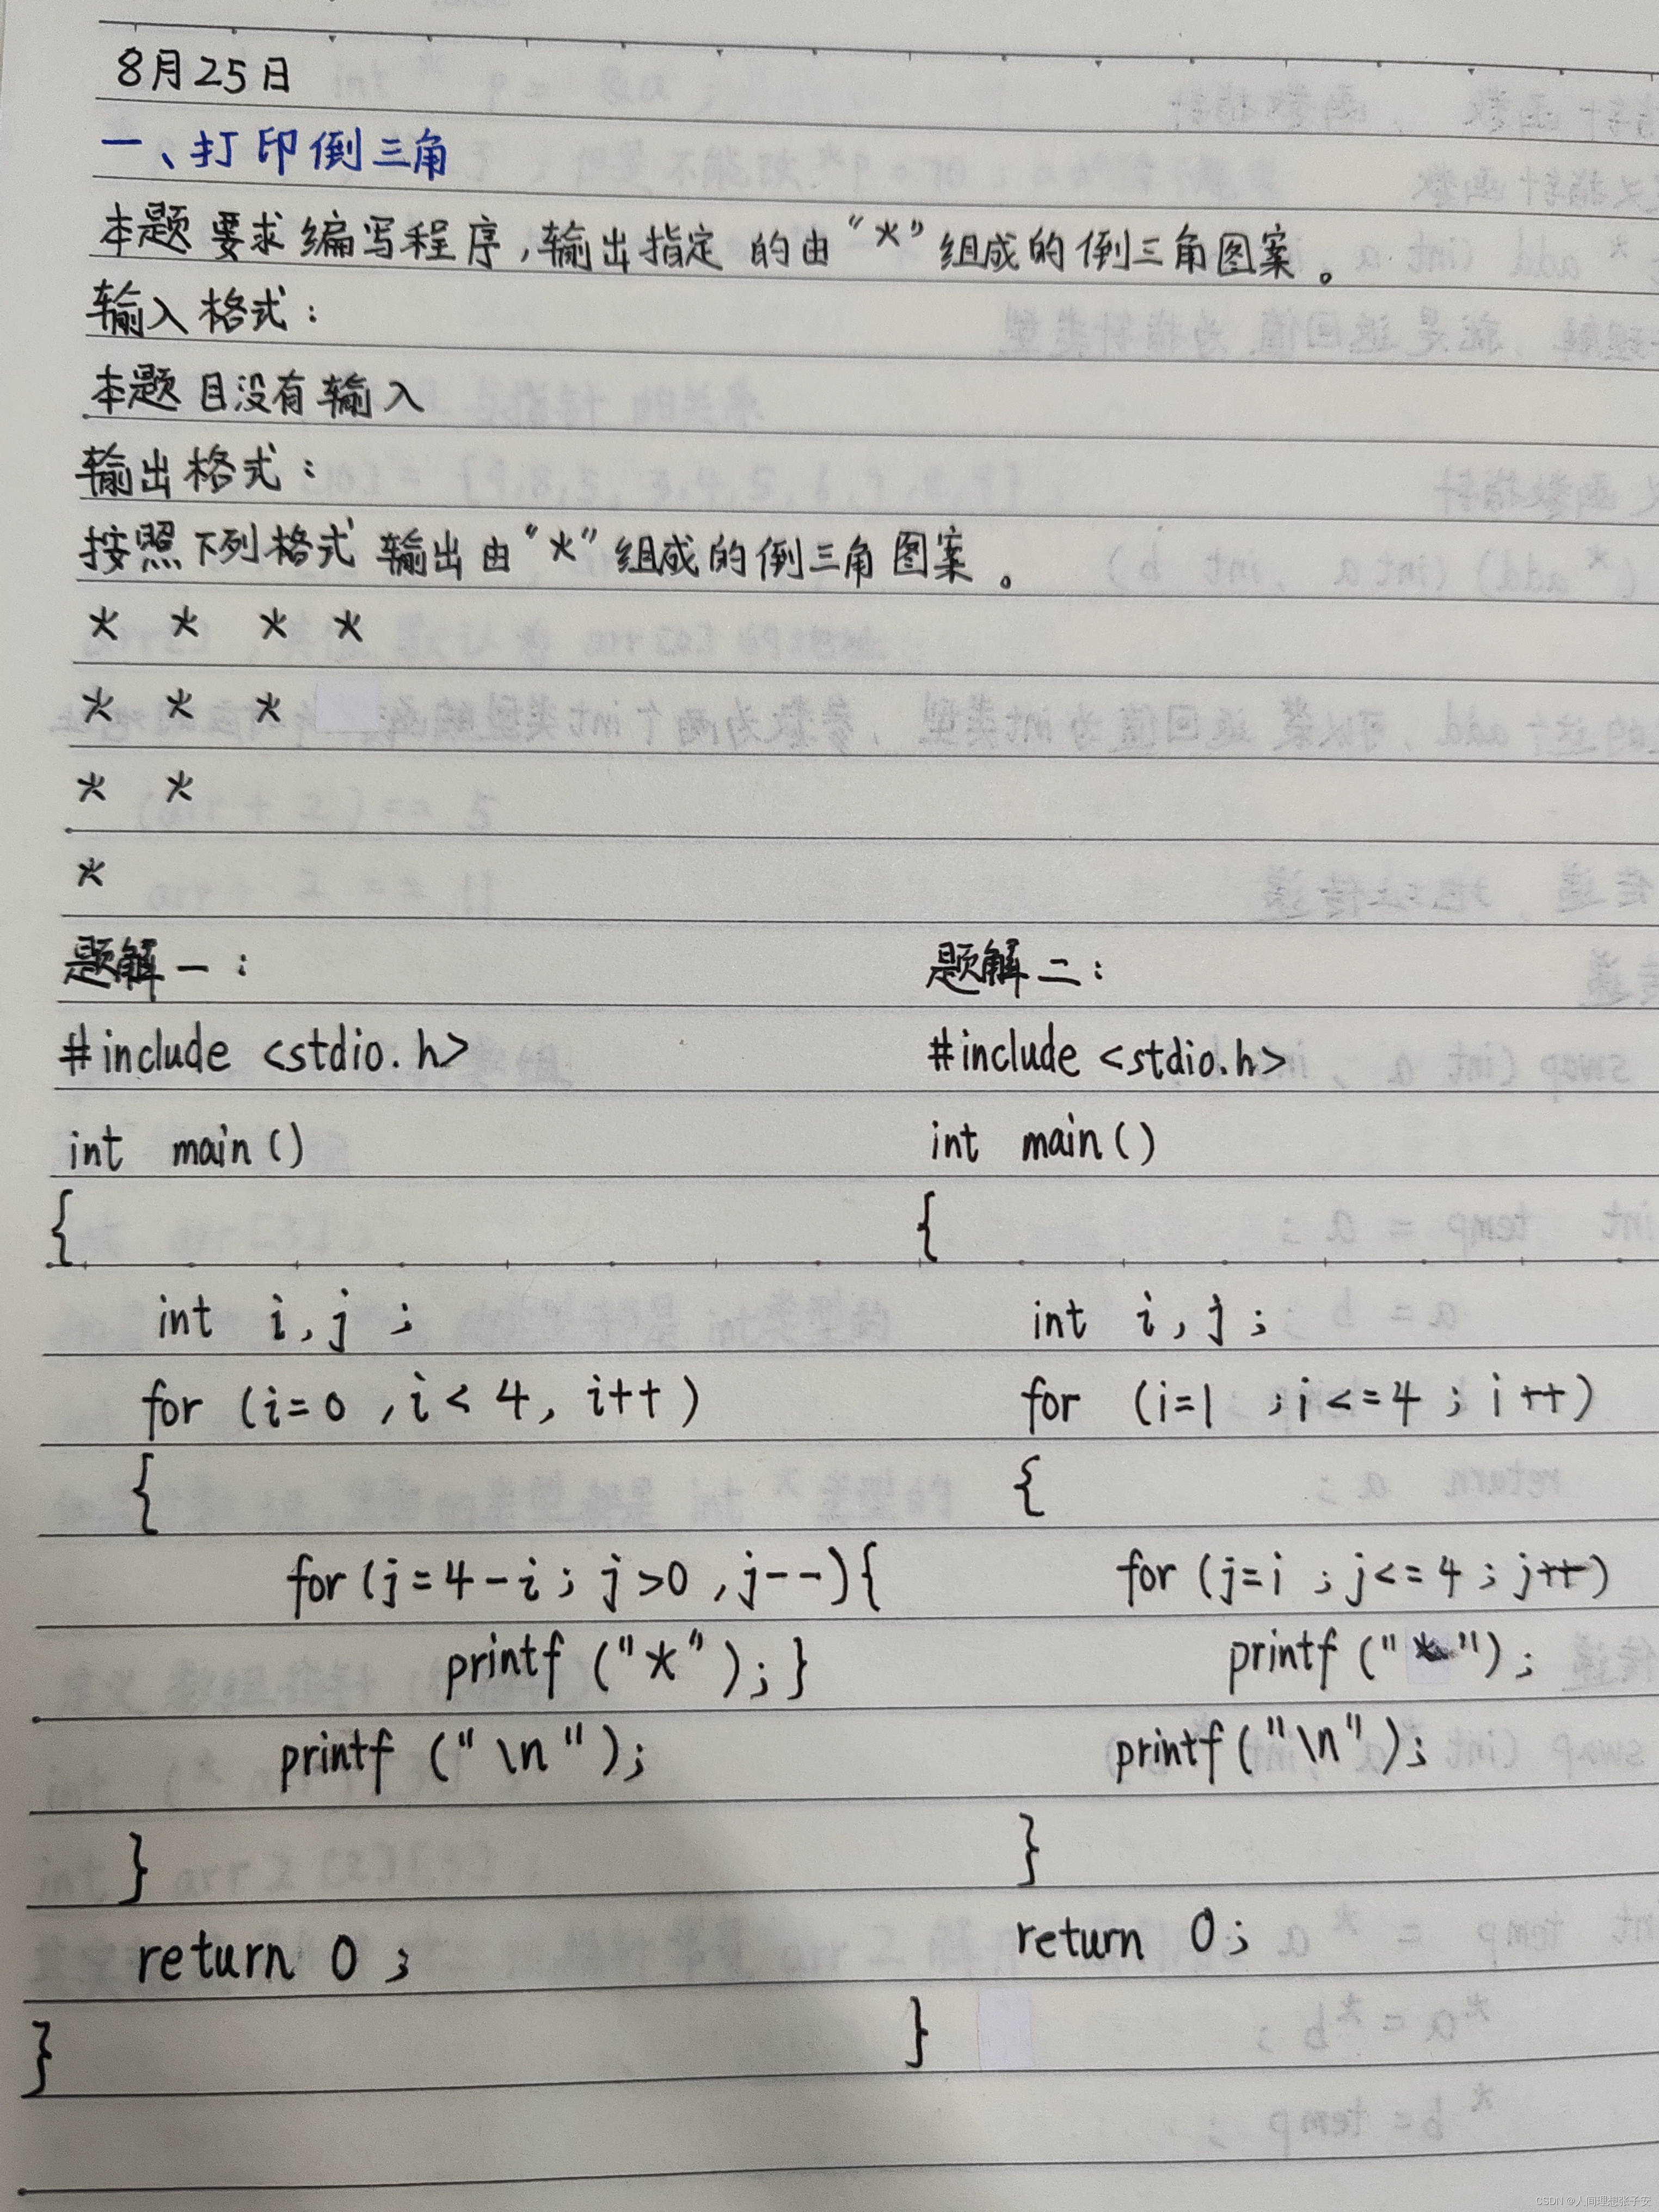 8月25日
一、打印倒三角
本题要求编写程序,输出指定的由“*”组成的倒三角图案。
输入格式:
本题目没有输入
输出格式:
按照下列格式输出由“*”组成的倒三角图案。
* * * *
* * *
* *
*
题解一:
#include <stdio.h>
int main()
{
int i,j ;
for (i=0 ,i< 4, i++ )
{
for(j=4-i; j>0 ,j--){
printf ("*");}
printf ("\n");
}
return 0 ;
}
题解二:
#include <stdio.h>
int main()
{
int i,j;
for (i=1 ;i<=4 ;i++)
{
for (j=i ;j<=4 ;j++)
printf ("*");
printf("\n");
}
return 0;
}
CSDN @人间理想张子安